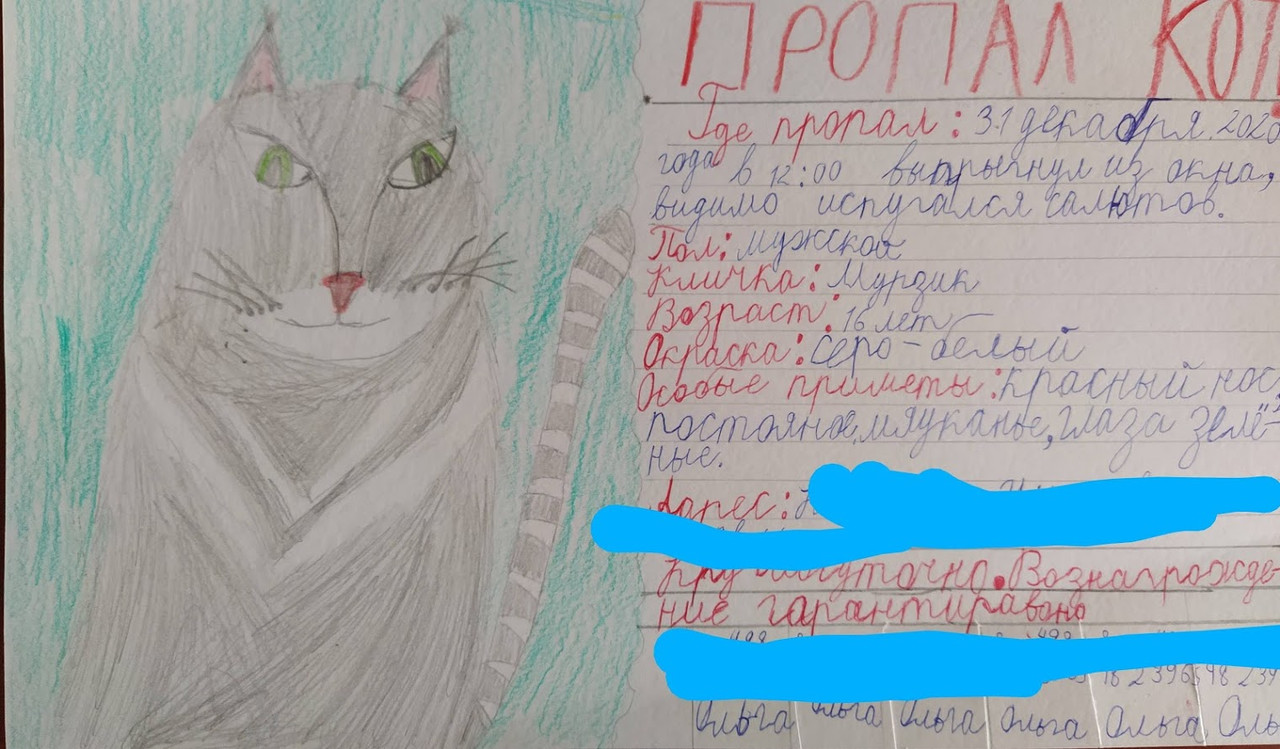 ПРОПАЛ КОТ
Где пропал: 31 декабря 2020
года в 12:00 выпрыгнул из окна,
видимо испугался салютов.
Пол: мужской
Кличка: Мурзик
Возраст: 16 лет
Окраска: серо-белый
Особые приметы: красный нос,
постояное мяуканье, глаза зелё-
ные.
Адрес:
Круглосуточно. Вознагрожде-
ние гарантировано
Ольга Ольга Ольга Ольга Ольга Оль